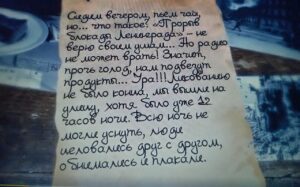 Сидим вечером, пьем чай,
но... что такое? «Прорыв
блокады Ленинграда» – не
верю своим ушам... Но радио
не может врать! Значит,
прочь голод, нам подвезут
продукты... Ура!!! Ликованию
не было конца, мы вышли на
улицу, хотя было уже 12
часов ночи. Всю ночь не
могли уснуть, люди
целовались друг с другом,
обнимались и плакали.